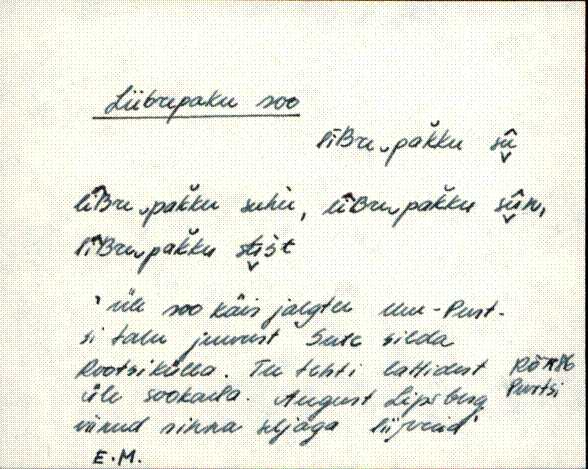 Liibrepaku soo
līBre‿pak̆ku sū̬̂
lîBre‿pak̆ku suhu, lîBre‿pak̆ku sū̬̂n,
lîBre‿pak̆ku
'üle soo käis jalgtee Uue-Purt-
si talu juurest Suure silda
Rootsikülla. Tee tehti lattidest
üle sookaela. August Lipsberg
viinud sinna seljaga liiprid'
Rõ π86
Purtsi
E.M.